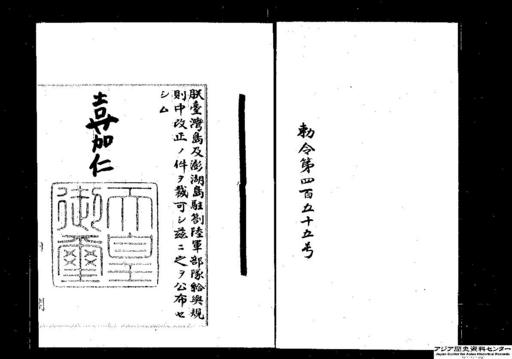 勅令第四百五十五号
朕臺灣島及澎湖島駐劄陸軍部隊給與規
則中改正ノ件ヲ裁可シ茲ニ之ヲ公布セ
シム
嘉仁
天皇
御璽
アジア歴史資料センター
Japan Center for Asian Historical Records